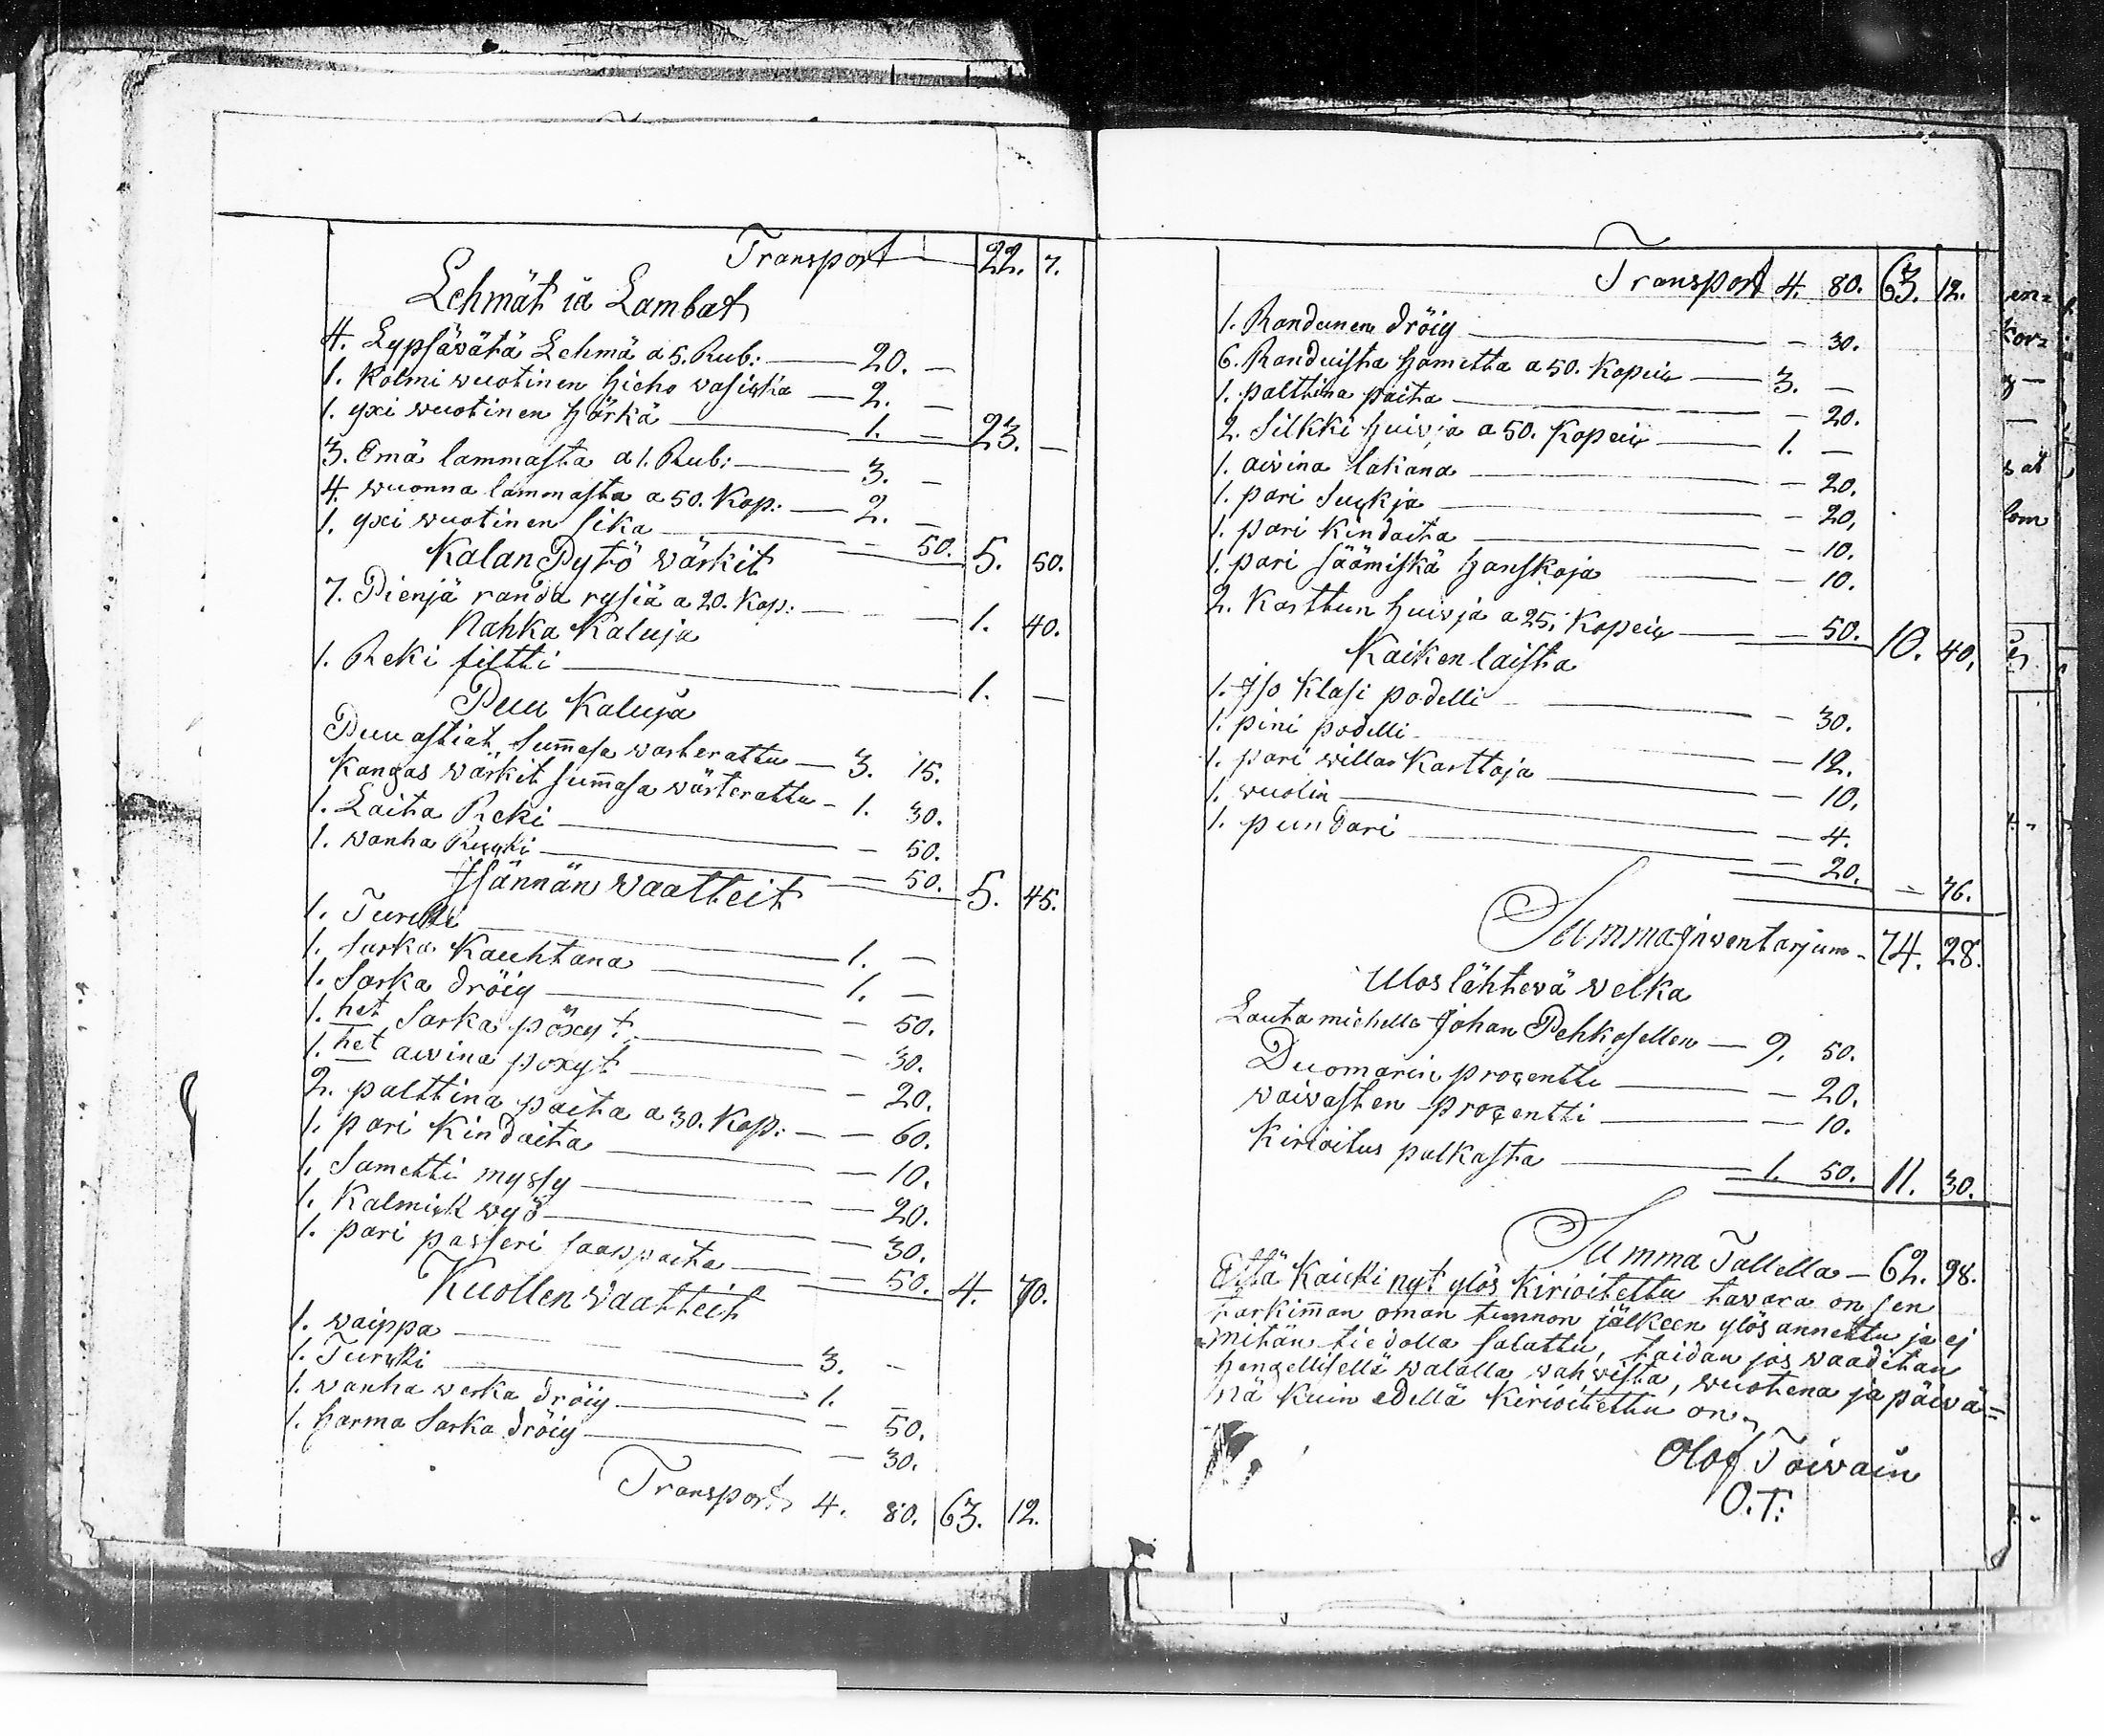 Transport 22. 7.
Lehmät ia Lambat
4. Lypsäwätä Lehmä a 5. Rub: — 20. —
1. Kolmi wuotinen hieho wasicka — 2. —
1. yxi wuotinen härkä — 1. — 23. —
3. Emä lammasta a 1. Rub: — 3. —
4. wuonna lammasta a 50. Kop: — 2. —
1. yxi wuotinen sika — 50. 5. 50.
Kalan Pytö wärkit
7. Pienjä randa rysiä a 20. Kop: — 1. 40.
Nahka Kaluja
1. Reki filtti — 1. —
Puu Kaluja
Puu astiat sum̄asa warterattu — 3. 15.
Kangas wärkit sum̄asa wärterattu - 1. 30.
1. Laita Reki — 50.
1. wanha Rucki — 50. 5. 45.
Isännän waatteit
1. Turcki — 1. —
1. sarka Kauhtana — 1. —
1. Sarka dröig — 50.
1. het Sarka pöxyt — 30.
1. het aiwina poxyt — 20.
2. palttina paita a 30. Kop: — 60.
1. pari Kindaita — 10.
1. Sametti myssy — 20.
1. Kalmick wyö — 30.
1. pari passeri saappaita — 50. 4. 70.
Kuollen Waatteit
1. waippa — 3. —
1. Turcki — 1. —
1. wanha werka dröig — 50.
1. harma Sarka dröig — 30.
Transport 4. 80. 63. 12.
Transport 4. 80. 63. 12.
1. Randunen dröig — 30.
6. Randuista hametta a 50. Kopeic — 3. —
1. palttina paita — 20.
2. Silkki huivja a 50. Kopeic — 1. —
1. aivina lakana — 20.
1. pari Suckja — 20,
1. pari Kindaita — 10.
1. pari säämiskä hanskoja — 10.
2. Karttun huivja a 25. Kopeic — 50. 10. 40.
Kaiken laista
1. Iso Klasi podelli — 30.
1. pini podelli — 12.
1. pari willa Karttoja — 10.
1. wuolin — 4.
1. pundari — 20. — 76.
Summa Inwentarjum - 74. 28.
Ulos lähtewä welka
Lauta miehelle Johan Pehkosellen — 9. 50.
Duomarin procentti — 20.
waivasten procentti — 10.
Kirioitus palkasta — 1. 50. 11. 30.
Summa Tallella — 62. 98.
Että Kaicki nyt ylös Kirioitettu tawara on sen
tarkim̄an oman tunnon jälkeen ylös annettu ja ej
mitän tiedolla salattu, taidan jos waaditan
hengellisellä walalla wahwista, wuotena ja päivä=
nä kuin edellä Kirioitettu on,
Olof Toivain
O. T: